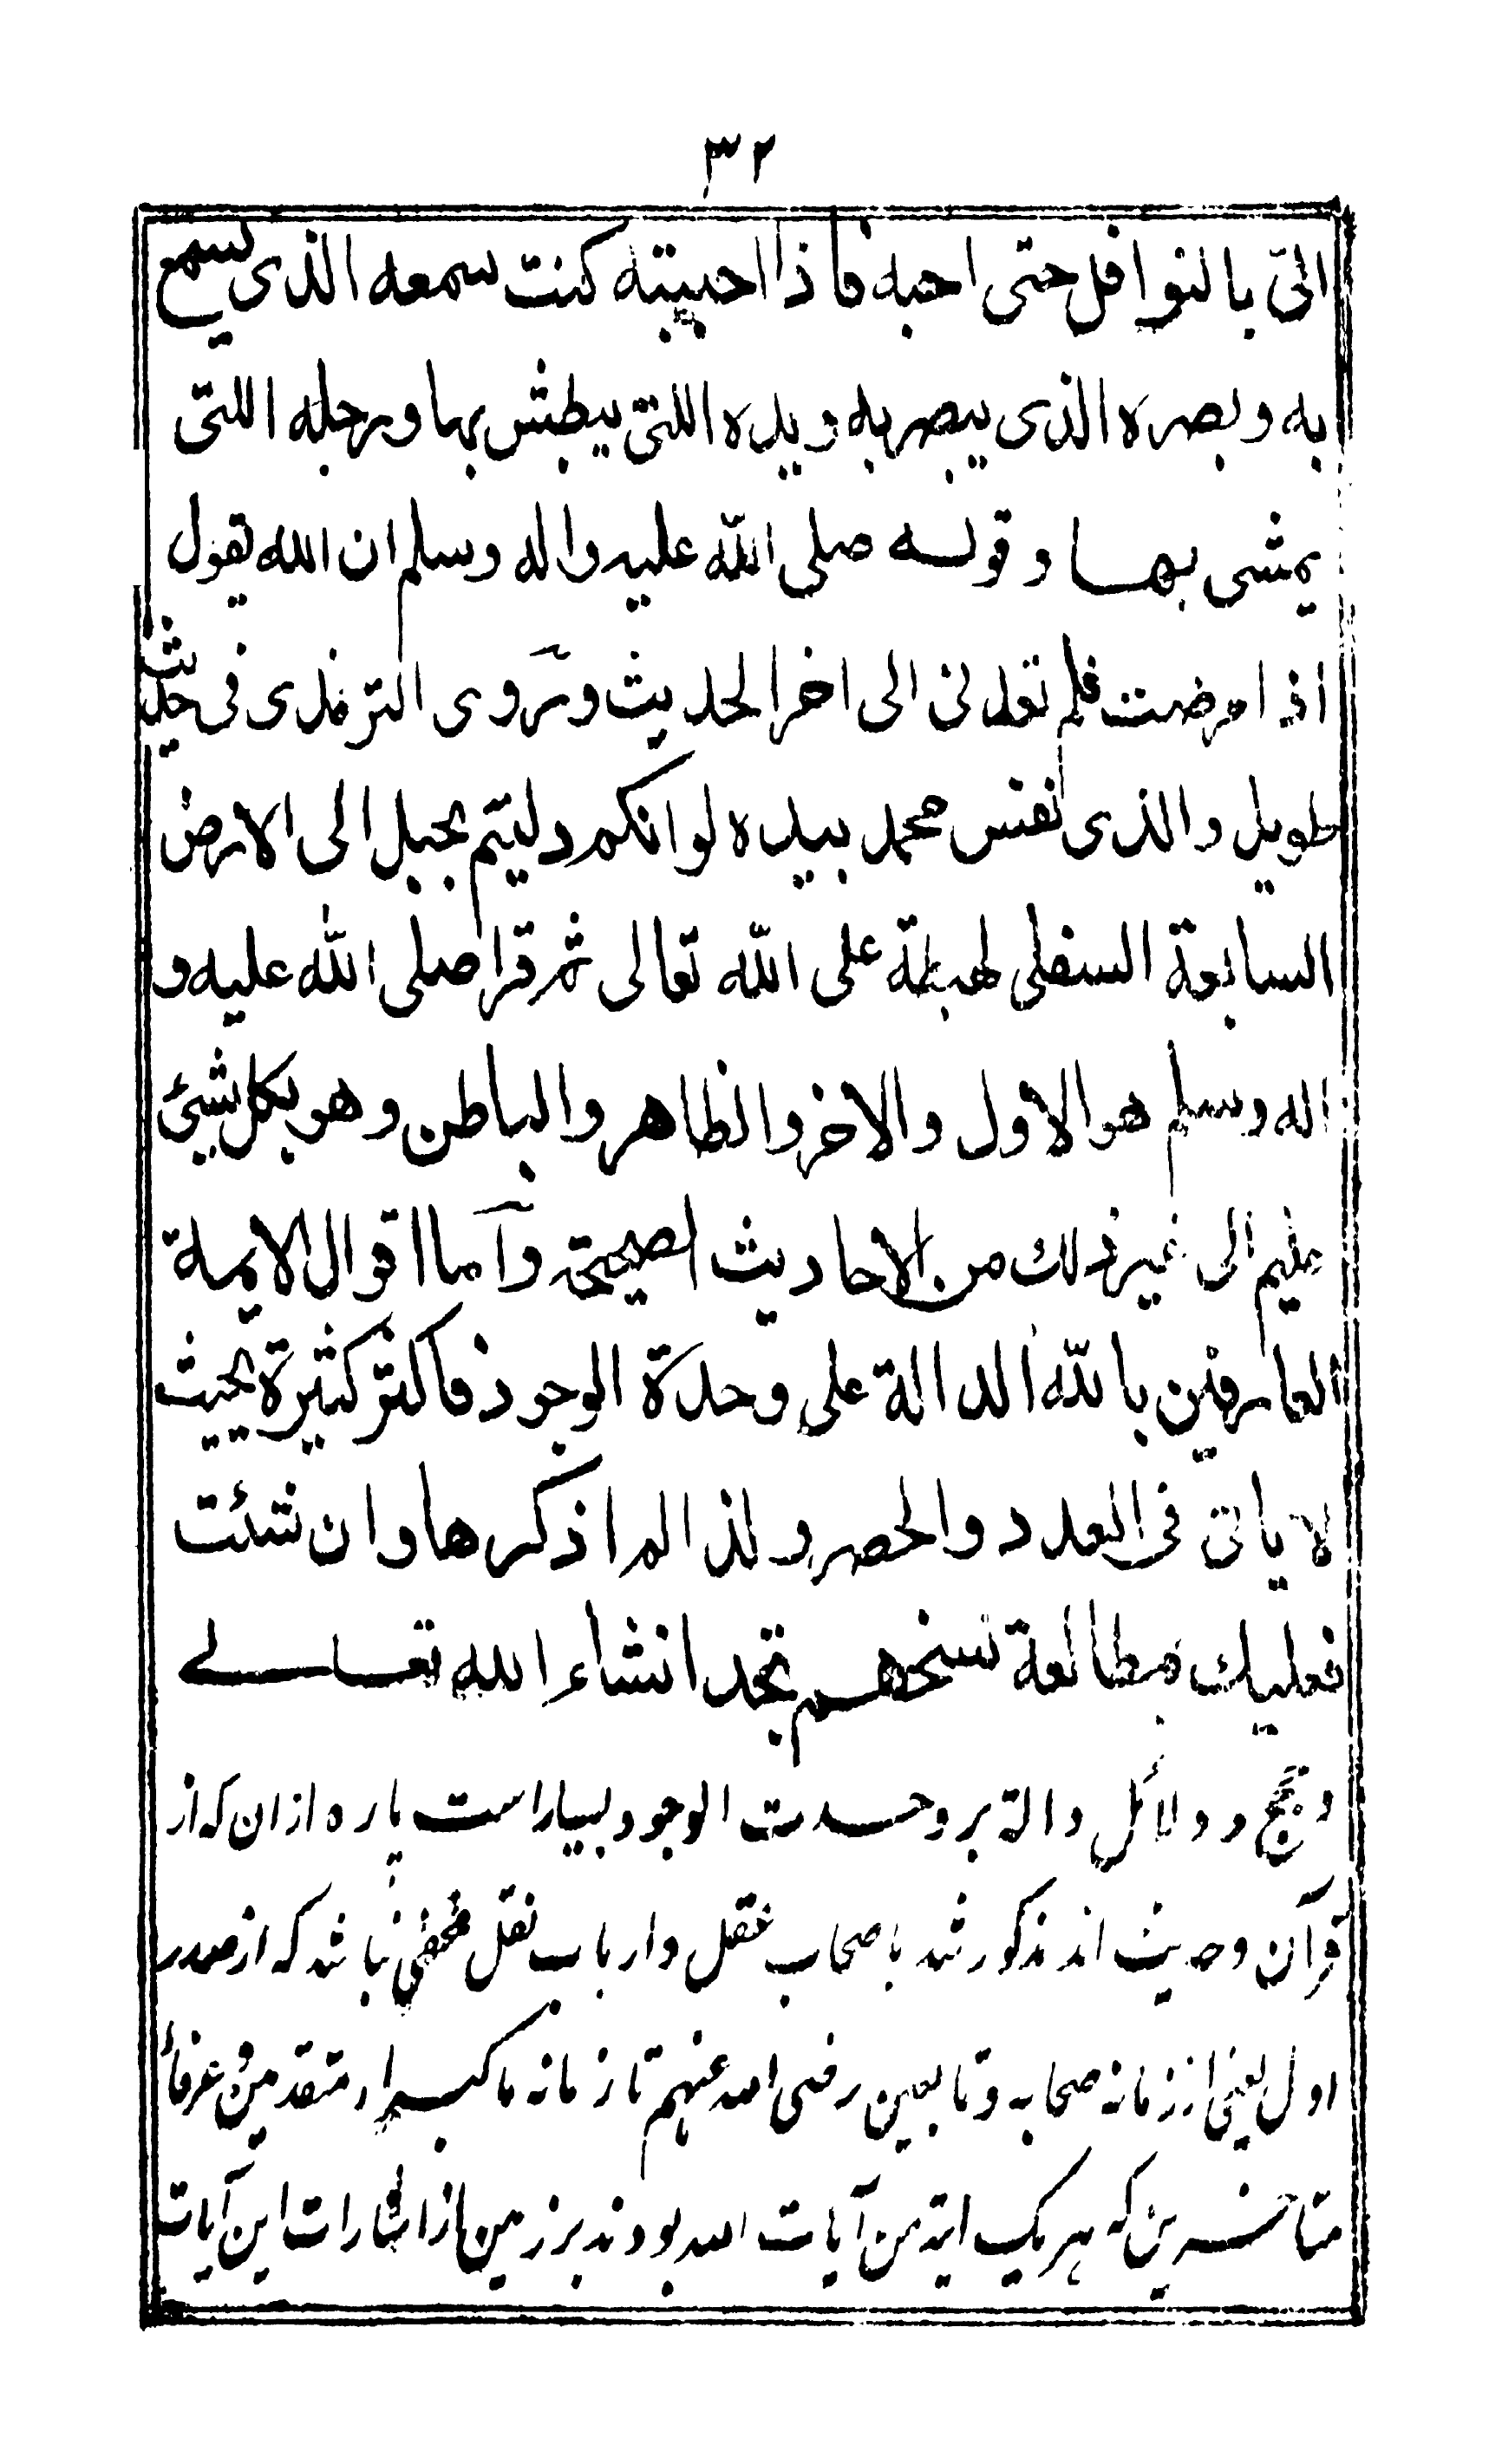 ٣٢
الىّ بالنوافل حتى احبه فاذا احببته كنت سمعه الذى يسمع
به وبصره الذى يبصر به ويده اللتى يبطش بها ورجله اللتى
يمشى بها وقوله صلى اللّه عليه واله وسلم ان الله يقول
اذا مرضت فلم تعدنى الى اخر الحديث وروى الترمذى فى حديث
طويل والذى نفس محمد بيده لو انكم دليتم بحبل الى الارض
السابعة السفلى لهبطة على اللّه تعالى ثم قرا صلى الله عليه و
اله وسلم هو الاول والاخر والظاهر والباطن وهو بكل شيئ
عليم الى غير ذلك من الاحاديث الصحيحة وآما اقوال الايمة
العارفين باللّه الدالة على وحدة الوجود فاكثر كثيرة بحيث
لا ياتى فى العدد والحصر ولذا لم اذكرها وان شئت
فعليك بمطالعة نسخهم تجد انشاء الله تعالے
و حجج و دلائل دالة بر وحدت الوجود بسيار است پاره ازان كه از
قرآن وحديث اند مذكور شد باصحاب عقل وارباب نقل مخفى نباشد كه از صدر
اول يعنى از زمانه صحابه وتابعين رضى الله عنهم تا زمانه ما كبراء متقدمين و عرفاء
متاخرين كه هر يك اية من آيات الله بودند بر زمين از اشارات اين آيات